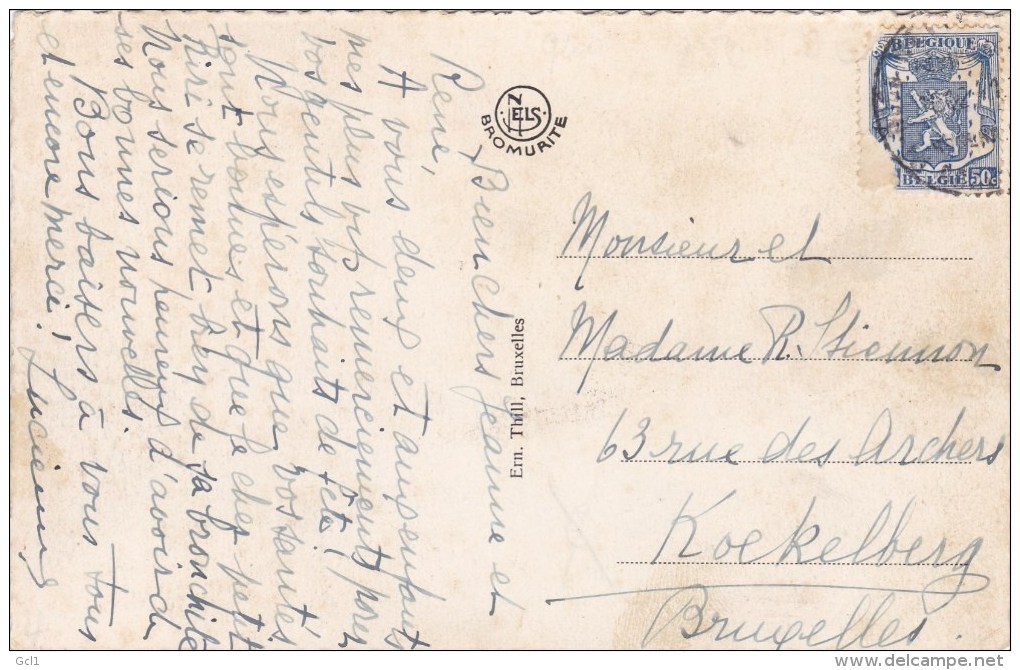 Bien chers Jeanne et
René,
A vous deux et aux enfants
mes plus vifs remerciements pour
vos gentils souhaits de fête!
Nous espérons que vos santés
sont bonnes et que le cher petit
se remet de sa bronchite
Nous serions heureux d'avoir de
ses bonnes nouvelles.
Bons baisers à vous tous
et encore merci!
Lucienne
NELS
BROMURITE
Ern. Thill, Bruxelles
BELGIQUE
BELGIE 50c
Monsieur et
Madame R. Stiennon
63 rue des Archers
Koekelberg
Bruxelles
Gcl1
delcampe.net